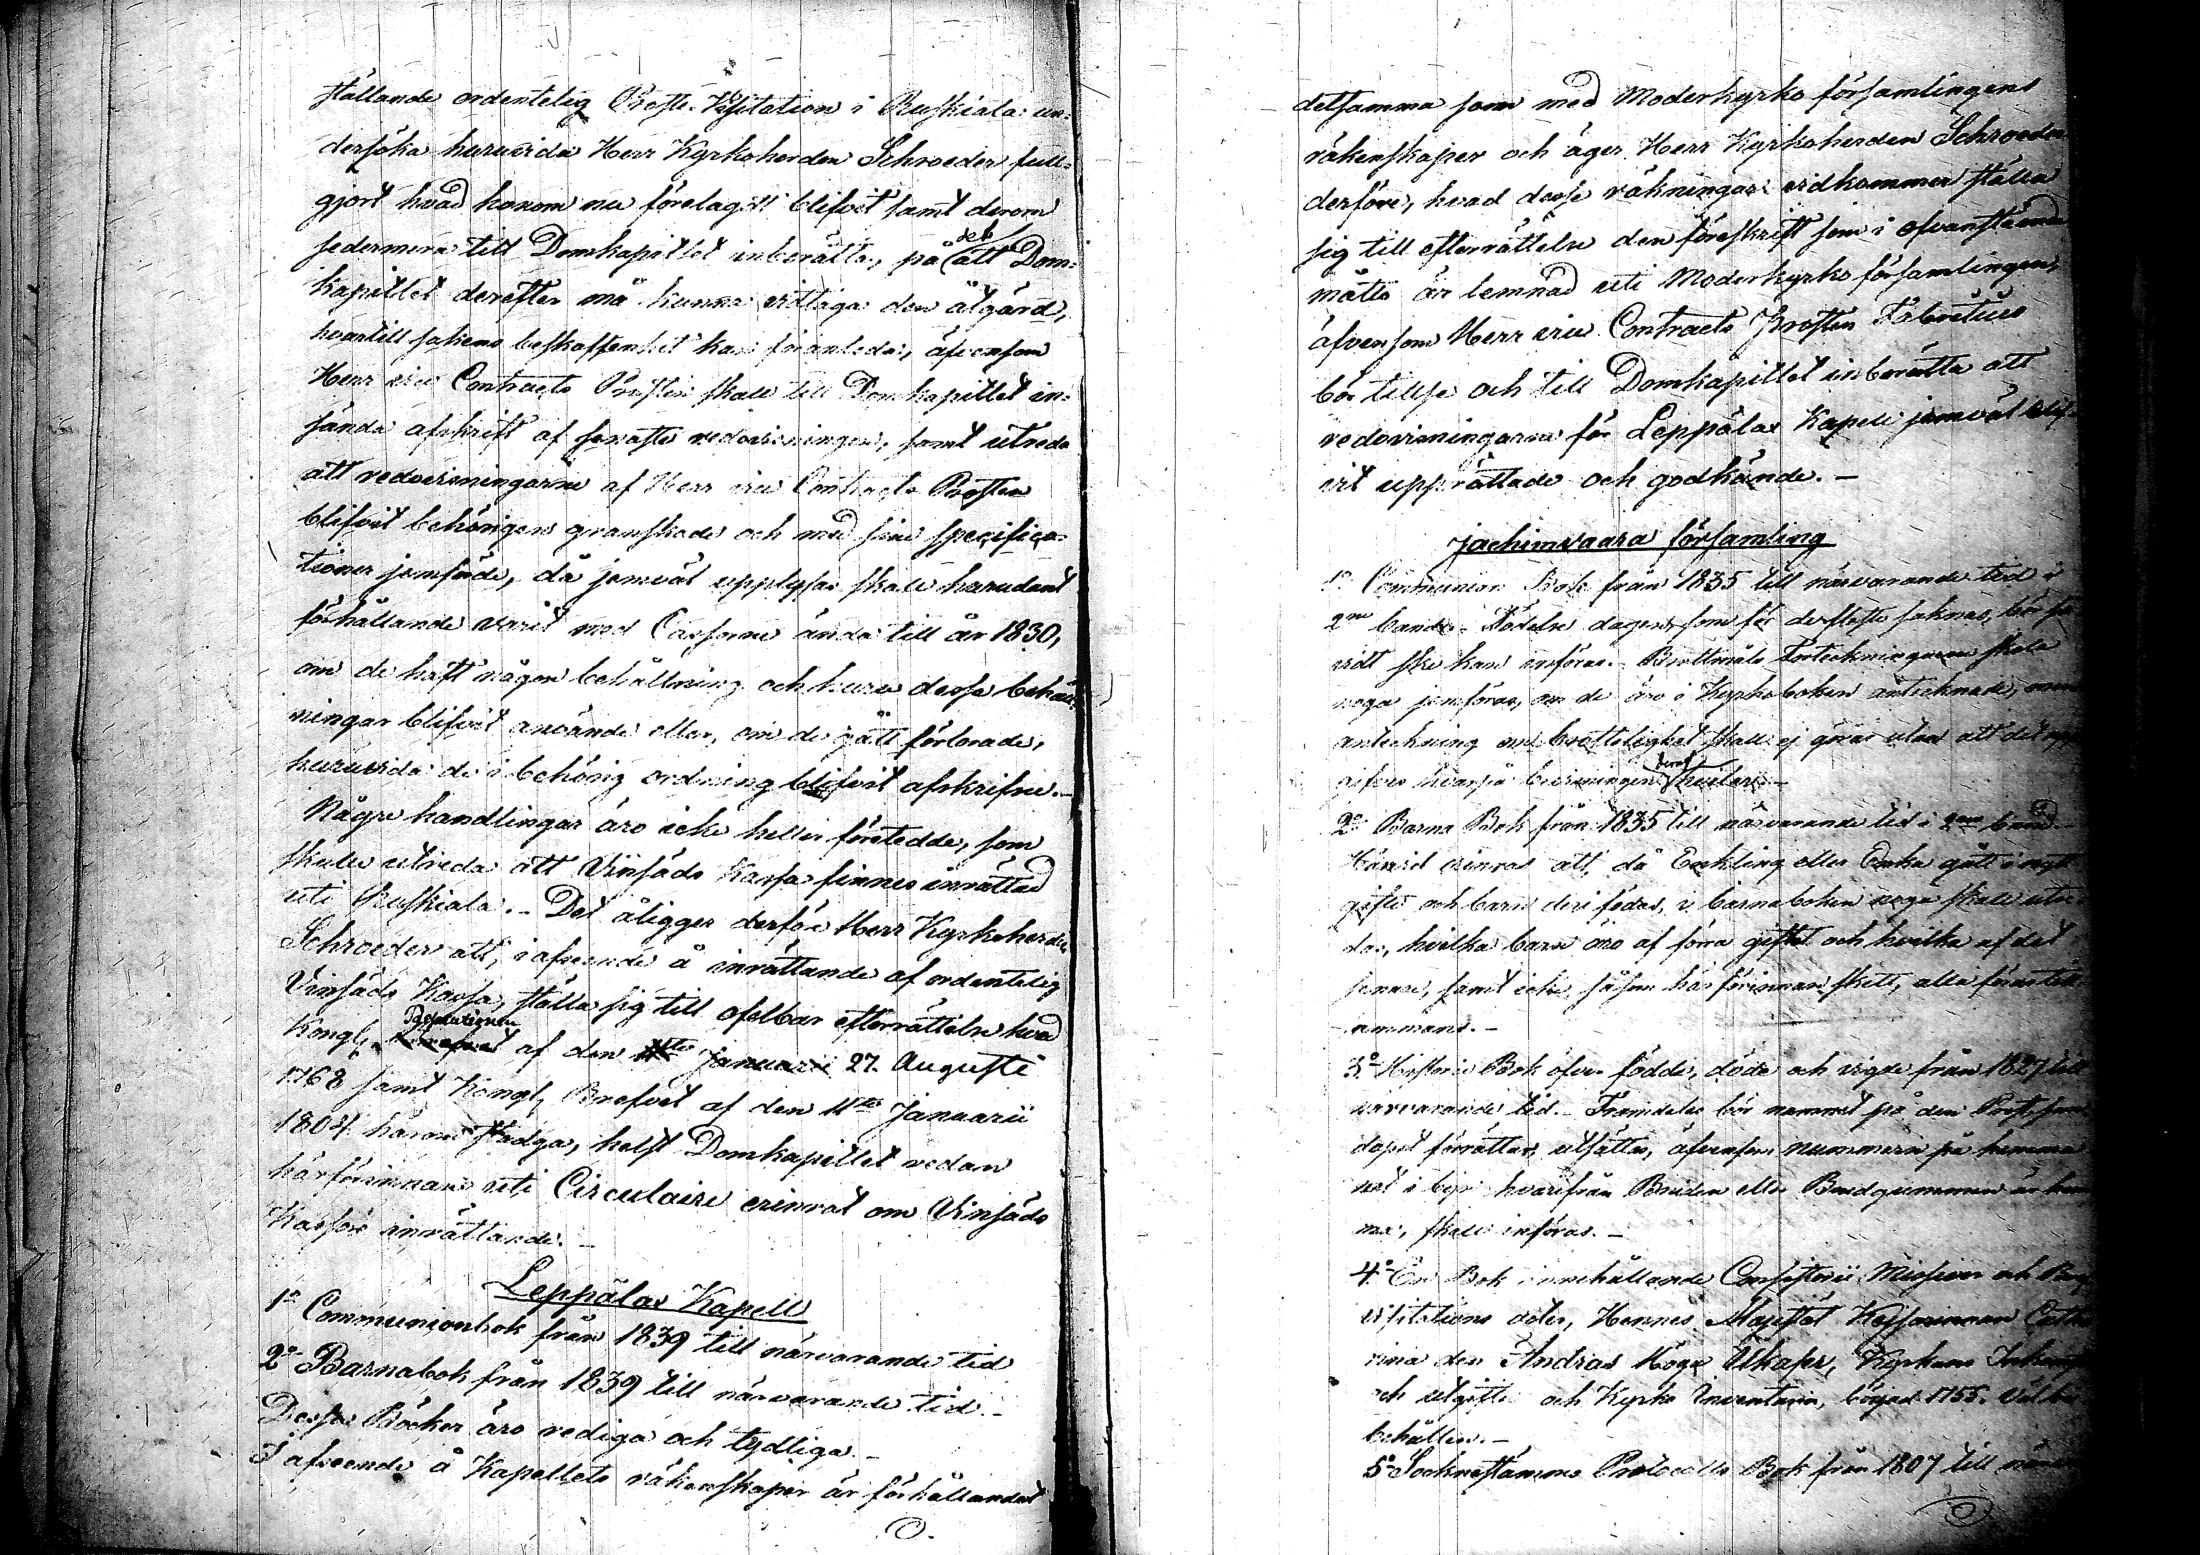 ställande ordentelig Prosts-Visitation i Ruskiala un-
dersöka huruvida Herr Kyrkoherden Schroeder full-
gjort hvad honom nu förelagdt blifvit samt derom
sedermera till Domkapitlet inberätta, på det att Dom-
kapitlet derefter må kunna vidtaga den åtgärd,
hvartill sakens beskaffenhet kan föranleda, äfvensom
Herr vice Contracts Prosten skall till Domkapitlet in-
sända afskrift af senaste redovisningen, samt utreda
att redovisningarne af Herr vice Contracts Prosten
blifvit behörigen granskade och med sine specifica-
tioner jemförde, då jemväl upplysas skall hurudant
förhållande varit med Cassorne ända till år 1830,
om de haft någon behållning och huru dessa behåll-
ningar blifvit använde eller, om de gått förlorade,
huruvida de i behörig ordning blifvit afskrifne.-
Någre handlingar äro icke heller företedde, som
skulle utreda att Vinsäds Kassa finnes inrättad
uti Ruskiala. - Det åligger derföre Herr Kyrkoherden
Schroeder att, i afseende å inrättande af ordentelig
Vinsäds Kassa, ställa sig till ofelbar efterrättelse hvad
Kongl. Resolutionen af den 11te Januarii 27. Augusti
1762 samt Kongl. Brefvet af den 11te Januarii
1804 härom stadga, helst Domkapitlet redan
härförinnan uti Circulaire erinrat om Vinsäds
Kassors inrättande. -
Leppälax Kapell
1o Communionbok från 1839 till närvarande tid
2o Barnabok från 1839 till närvarande tid. -
Dessa Böcker äro rediga och tydliga. -
I afseende å Kapellets räkenskaper är förhållandet
detsamma som med Moderkyrko församlingens
räkenskaper och äger Herr Kyrkoherden Schroeder
derföre, hvad desse räkningar vidkommer ställa
sig till efterrättelse den föreskrift som i ofvanstående
måtto är lemnad uti Moderkyrko församlingen,
äfvensom Herr vice Contracts Prosten
bör tillse och till Domkapitlet inberätta att
redovisningarne för Leppälax Kapell jemväl blif-
vit upprättade och godkände. -
Jachimvaara församling
1o Communion Bok från 1835 till närvarande tid i
2ne band. Födelse dagen, som för derstefte saknas, bör så
vidt ske kan införas. Brottmåls Förteckningarna skola
noga jemföras, om de äro i Kyrkoboken antecknade, men
anteckning om brottslighet skall ej göras utan att det
gifves hvarpå bevisningen derof hvilar. -
2o Barna Bok från 1835 till närvarande tid i 2ne band
härvid erinras att, då Enkling eller Enka gått i nytt
gifte och barn deri födas, i barnaboken noga skall utre-
das, hvilka barn äro af förra giftet och hvilka af det
senare, samt icke, såsom härförinnan skett, alla föras till-
ammans. -
3o Historie Bok öfver födde, döde och vigde från 1827 till
närvarande tid. - Framdeles bör namnet på den Prest, som
dopet förrättar, utsättas, äfvensom nummern på hemma-
net i byn hvarifrån Bruden eller Brudgummen är hem-
ma, skall införas. -
4o En Bok innehållande Consistorii Missiver och
visitations acter, Hennes Majestät Kejsarinnan Catha-
rina den Andras Höga Ukaser, Kyrkans Inkomst
och utgifter och Kyrko Inventarium, börjad 1755. väl
behållen. -
5o Sockenstämmo Protocolls Bok från 1807 till